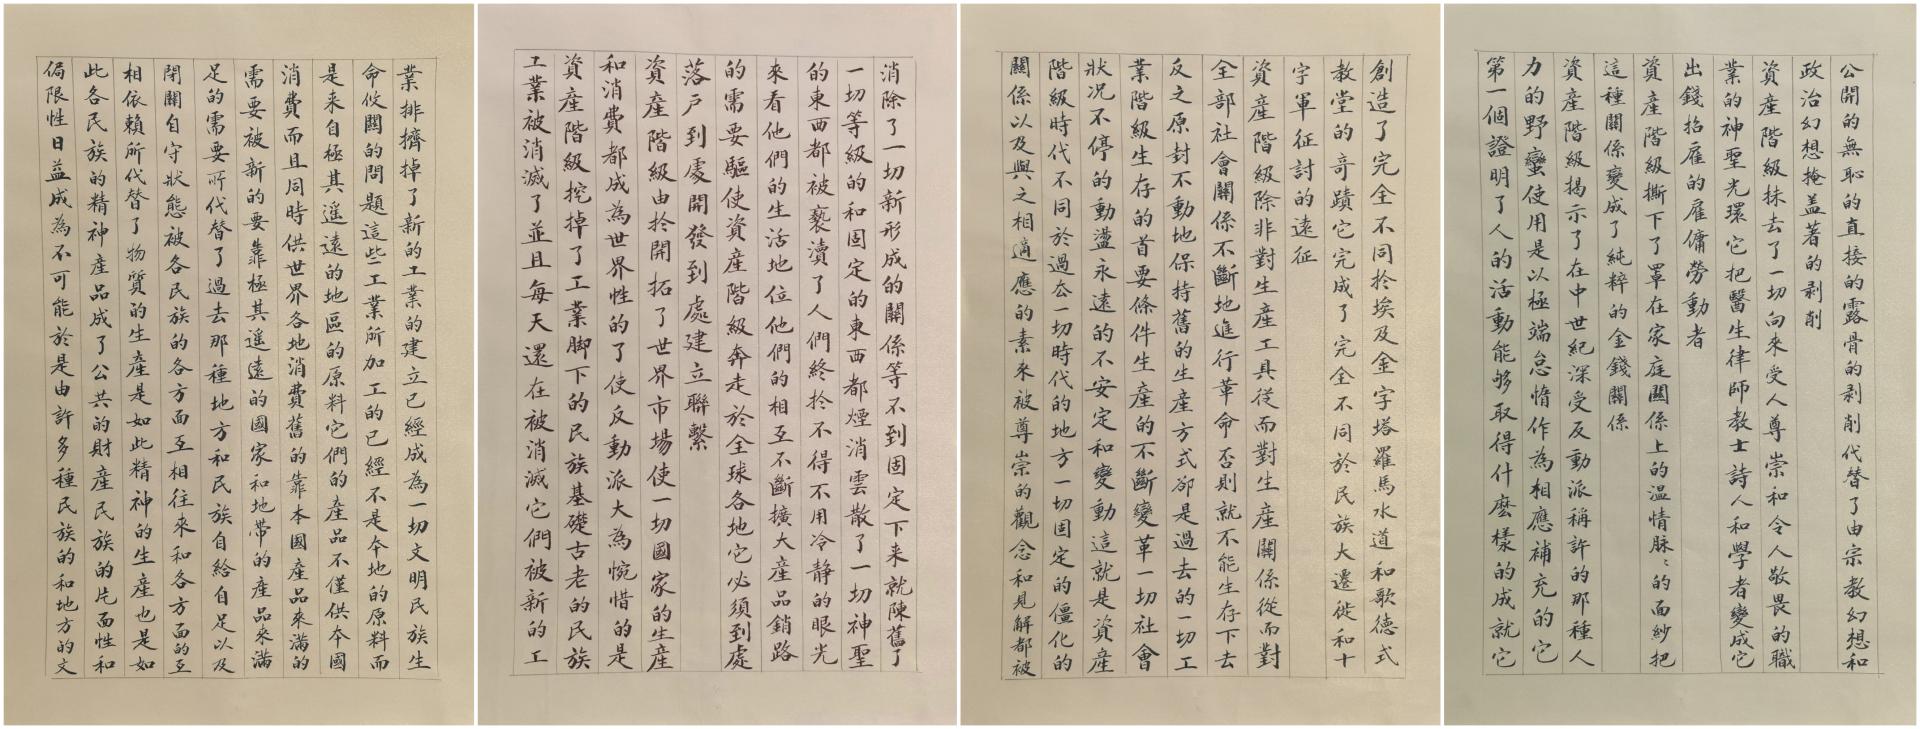 公開的無恥的直接的露骨的剥削代替了由宗教幻想和
政治幻想掩盖著的剥削
資產階級抹去了一切向來受人尊崇和令人敬畏的職
業的神聖光環它把醫生律師教士詩人和學者變成它
出錢招雇的雇傭勞動者
資產階級撕下了罩在家庭關係上的温情脉〻的面紗把
這種關係變成了純粹的金錢關係
資產階級揭示了在中世紀深受反動派稱許的那種人
力的野蠻使用是以極端怠惰作為相應補充的它
第一個證明了人的活動能够取得什麽樣的成就它
創造了完全不同於埃及金字塔羅馬水道和歌德式
教堂的奇蹟它完成了完全不同於民族大遷徙和十
字軍征討的遠征
資產階級除非對生產工具從而對生產關係從而對
全部社會關係不斷地進行革命否則就不能生存下去
反之原封不動地保持舊的生產方式卻是過去的一切工
業階級生存的首要條件生產的不斷變革一切社會
狀况不停的動盪永遠的不安定和變動這就是資產
階級時代不同於過去一切時代的地方一切固定的僵化的
關係以及與之相適應的素來被尊崇的觀念和見解都被
消除了一切新形成的關係等不到固定下来就陳舊了
一切等級的和固定的東西都煙消雲散了一切神聖
的東西都被褻瀆了人們終於不得不用冷静的眼光
來看他們的生活地位他們的相互關係不斷擴大產品銷路
的需要驅使資產階級奔走於全球各地它必須到處
落户到處開發到處建立聯繫
資產階級由於開拓了世界市場使一切國家的生產
和消費都成為世界性的了使反動派大為惋惜的是
資產階級挖掉了工業脚下的民族基礎古老的民族
工業被消滅了並且每天還在被消滅它們被新的工
業排擠掉了新的工業的建立已經成為一切文明民族生
命攸關的問題這些工業所加工的已經不是本地的原料而
是来自極其遥遠的地區的原料它們的產品不僅供本國
消費而且同時供世界各地消費舊的靠本國產品來滿的
需要被新的要靠極其遥遠的國家和地帶的產品來滿
足的需要所代替了過去那種地方和民族自給自足以及
閉關自守狀態被各民族的各方面互相往来和各方面的互
相依賴所代替了物質的生產是如此精神的生產也是如
此各民族的精神產品成了公共的財產民族的片面性和
侷限性日益成為不可能於是由許多種民族的和地方的文